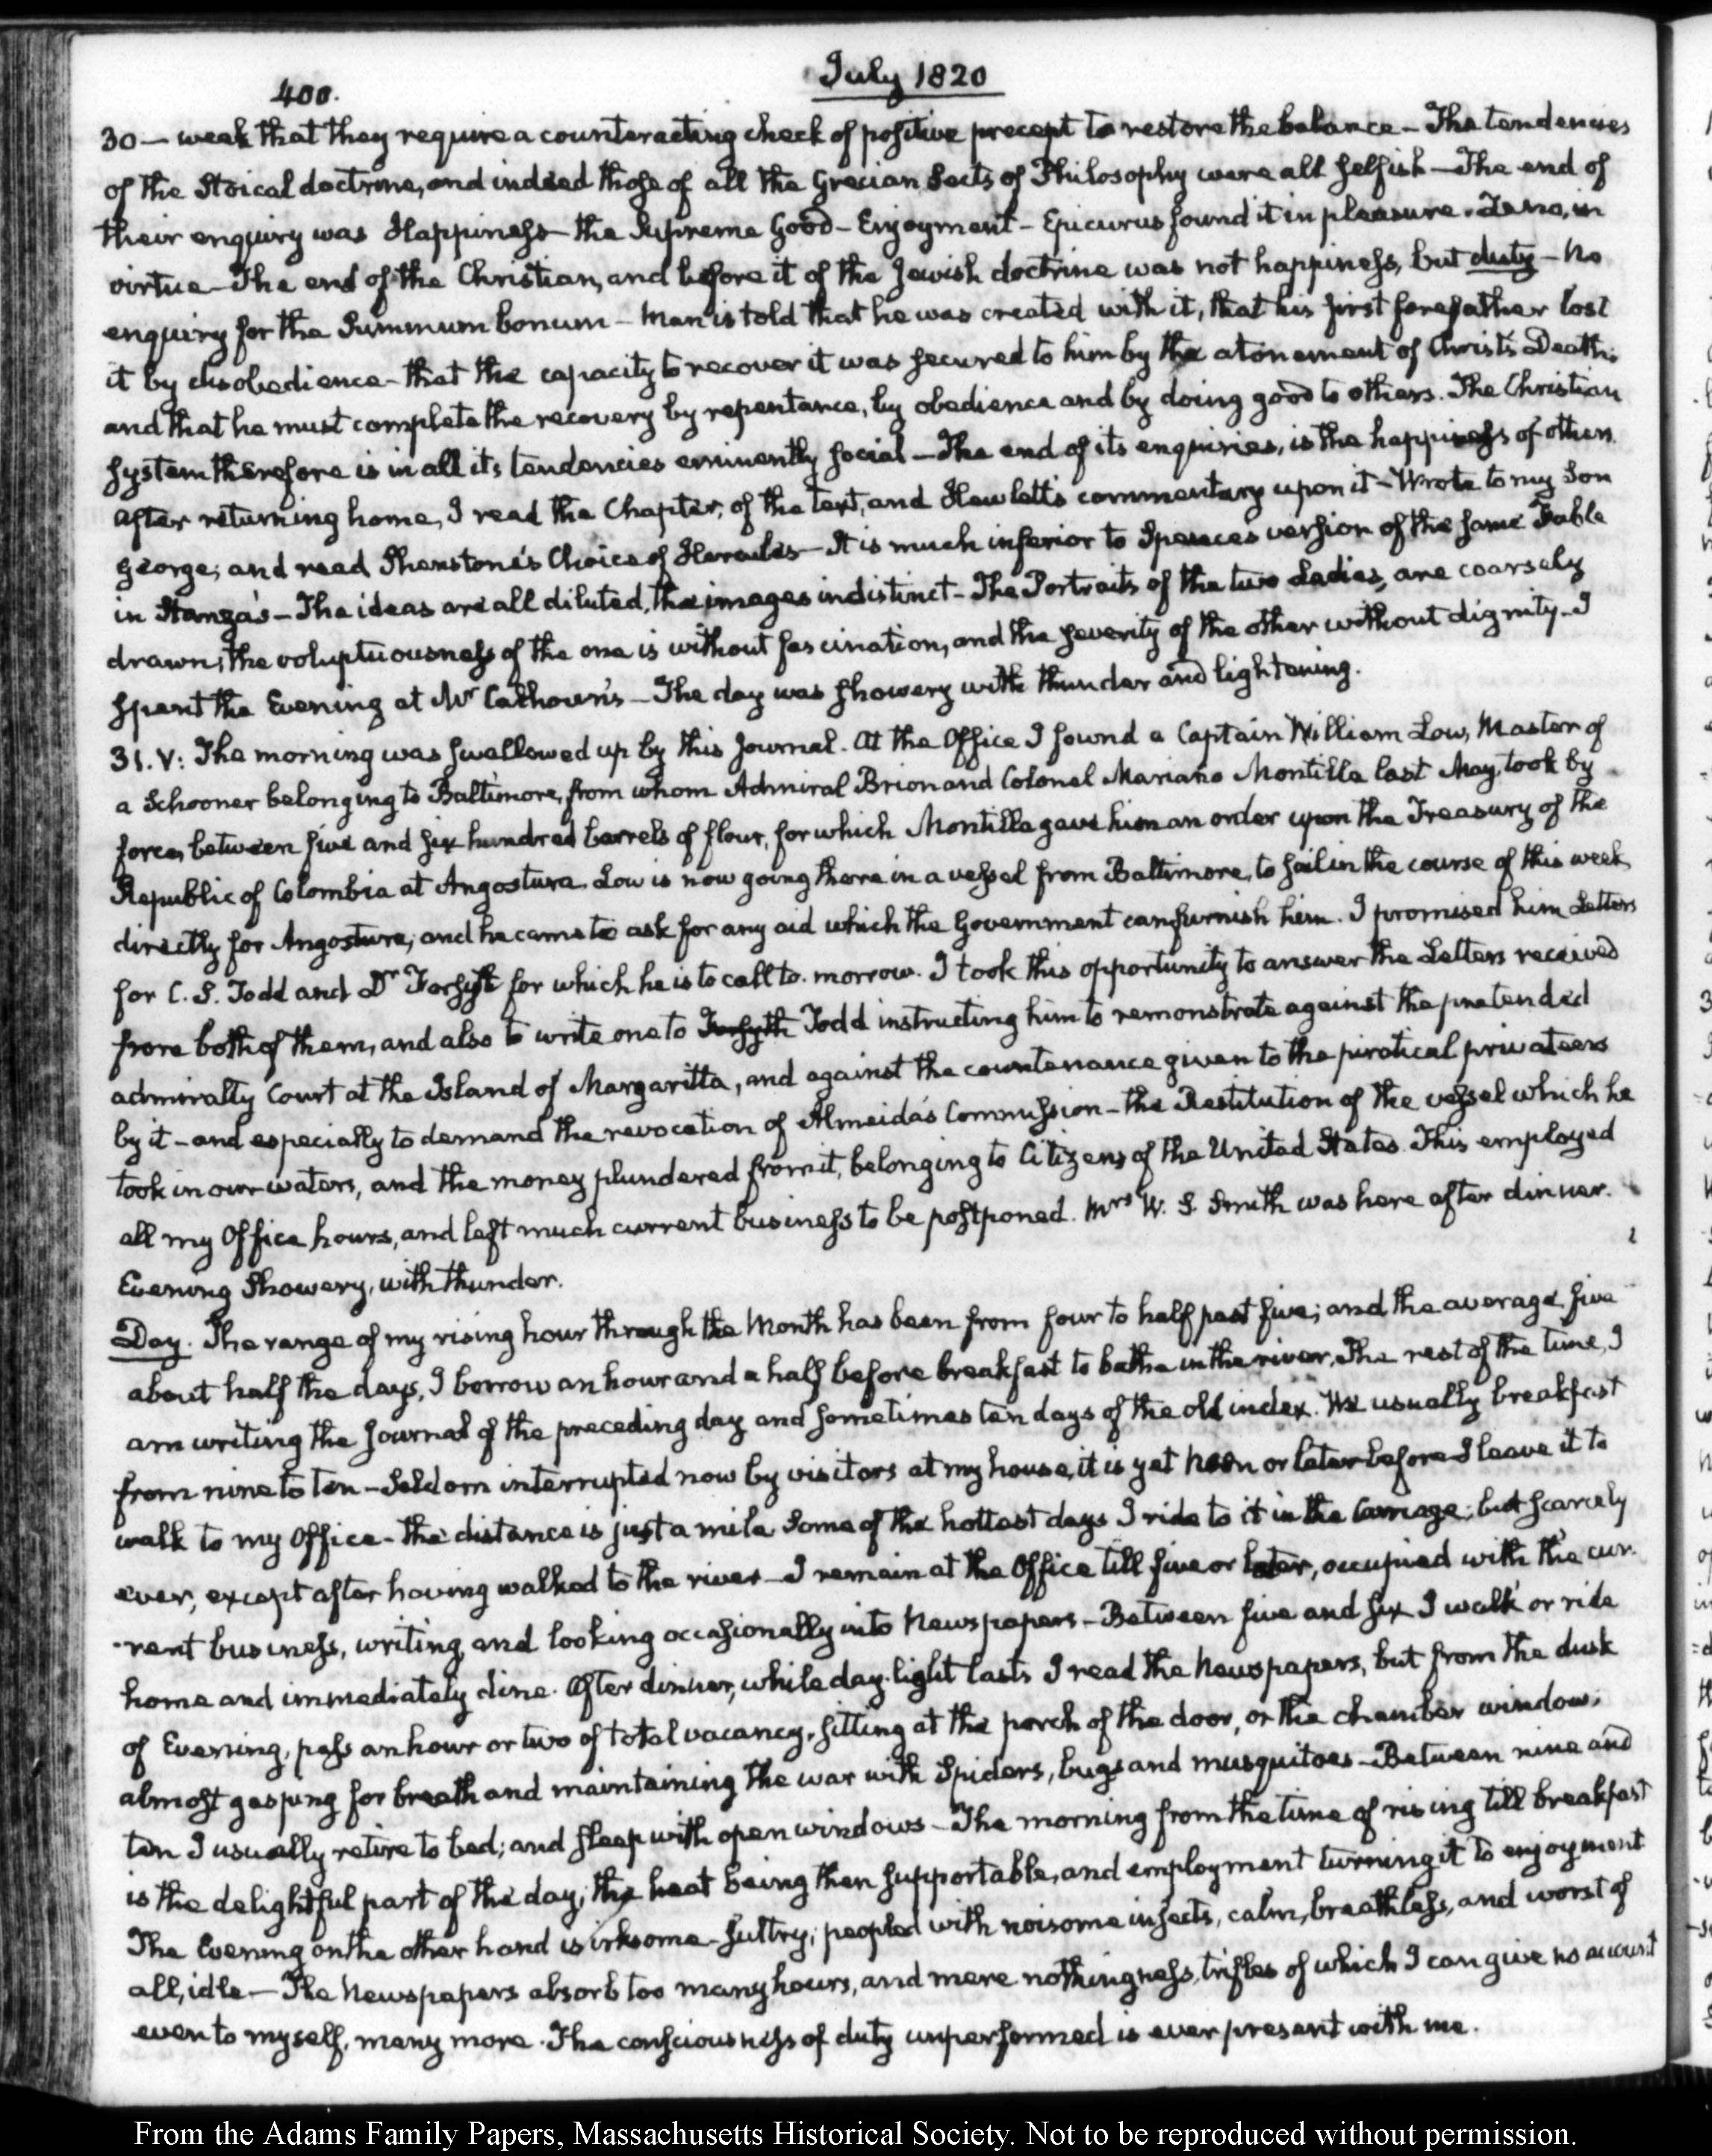 400.
July 1820
30 — weak that they require a counteracting check of positive precept to restore the balance — The tendencies
of the Stoical doctrine, and indeed those of all the Grecian Sects of Philosophy were all selfish — The end of
their enquiry was Happiness — the Supreme Good — Enjoyment — Epicurus found it in pleasure. Zeno, in
virtue — The end of the Christian, and before it of the Jewish doctrine was not happiness, but duty — No
enquiry for the Summum bonum — Man is told that he was created with it, that his first forefather lost
it by disobedience — that the capacity to recover it was secured to him by the atonement of Christ's Death;
and that he must complete the recovery by repentance, by obedience and by doing good to others. The Christian
System therefore is in all its tendencies eminently social — The end of its enquiries, is the happiness of others.
After returning home, I read the Chapter, of the text, and Hewlett's commentary upon it — Wrote to my Son
George; and read Shenstone's Choice of Hercules — It is much inferior to Spence's version of the same Fable
in Stanza's — The ideas are all diluted, the images indistinct — The Portraits of the two Ladies, are coarsely
drawn; the voluptuousness of the one is without fascination, and the severity of the other without dignity — I
spent the Evening at Mr Calhoun's — The day was showery with thunder and lightening.
31. V: The morning was swallowed up by this Journal. At the Office I found a Captain William Low, Master of
a Schooner belonging to Baltimore, from whom Admiral Brion and Colonel Mariano Montilla last May, took by
force, between five and six hundred barrels of flour, for which Montilla gave him an order upon the Treasury of the
Republic of Colombia at Angostura. Low is now going there in a vessel from Baltimore, to sail in the course of this week,
directly for Angostura; and he came to ask for any aid which the Government can furnish him. I promised him Letters
for C. S. Todd and Dr Forsyth for which he is to call to-morrow. I took this opportunity to answer the Letters received
from both of them, and also to write one to Forsyth Todd instructing him to remonstrate against the pretended
admiralty Court at the Island of Margaritta, and against the countenance given to the piratical privateers
by it — and especially to demand the revocation of Almeida's Commission — the Restitution of the vessel which he
took in our waters, and the money plundered from it, belonging to Citizens of the United States. This employed
all my Office hours, and left much current business to be postponed. Mrs W. S. Smith was here after dinner.
Evening Showery, with thunder.
Day. The range of my rising hour through the Month has been from four to half past five; and the average five
about half the days, I borrow an hour and a half before breakfast to bathe in the river, The rest of the time, I
am writing the Journal of the preceding day and sometimes ten days of the old index. We usually breakfast
from nine to ten — Seldom interrupted now by visitors at my house, it is yet Noon or later before I leave it to
walk to my Office — the distance is just a mile. Some of the hottest days I ride to it in the Carriage; but scarcely
ever, except after having walked to the river — I remain at the Office till five or later, occupied with the cur-
-rent business, writing, and looking occasionally into Newspapers — Between five and six I walk or ride
home and immediately dine. After dinner, while day-light lasts I read the Newspapers, but from the dusk
of Evening, pass an hour or two of total vacancy, sitting at the porch of the door, or the chamber window;
almost gasping for breath and maintaining the war with Spiders, bugs and musquitoes — Between nine and
ten I usually retire to bed; and sleep with open windows — The morning from the time of rising till breakfast
is the delightful part of the day; the heat being then supportable, and employment turning it to enjoyment
The Evening on the other hand is irksome — sultry; peopled with noisome insects, calm, breathless, and worst of
all, idle — The Newspapers absorb too many hours, and mere nothingness, trifles of which I can give no account
even to myself, many more. The consciousness of duty unperformed is ever present with me.
From the Adams Family Papers, Massachusetts Historical Society. Not to be reproduced without permission.